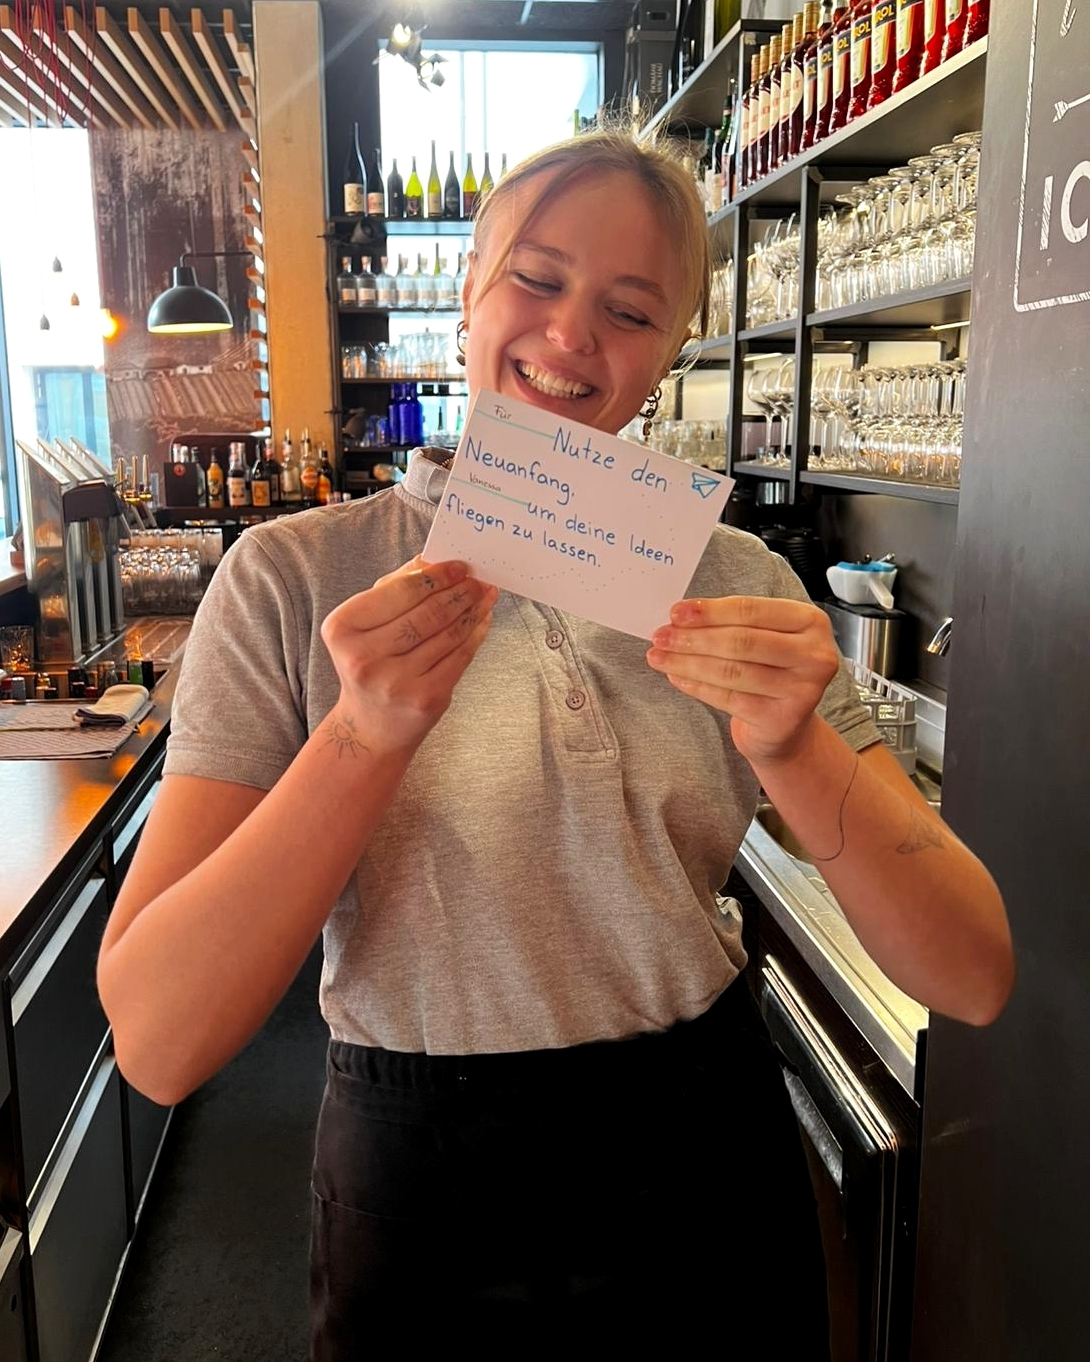 Für
Nutze den
Neuanfang,
Vanessa
um deine Ideen
fliegen zu lassen.